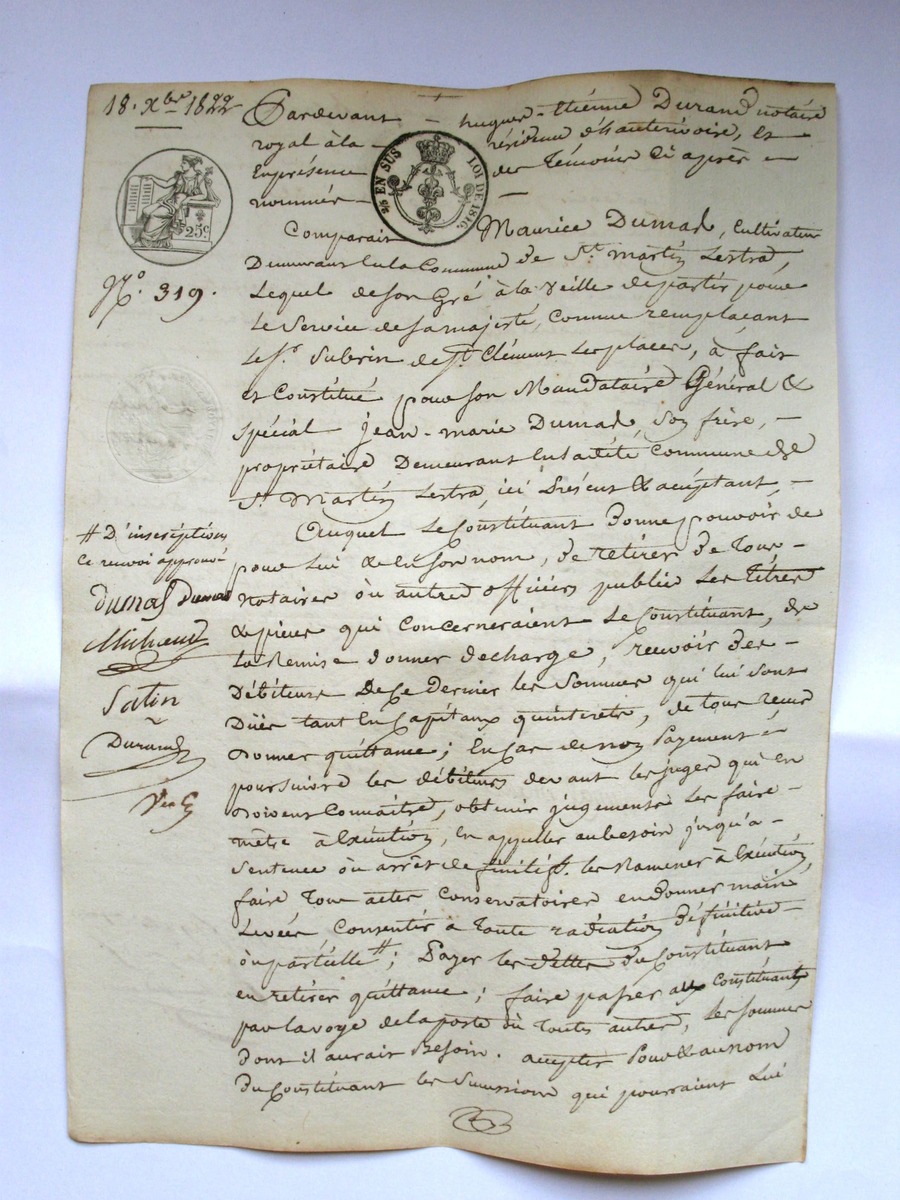 18. Xbre 1822
Pardevant - hugues-Etiénne Durand notaire
royal à la - résidence d'hauterivoire, et
En présence des témoins Ci après -
nommés -
25 EN SUS LOI DE 1816.
25c.
Nº. 319.
Comparait Maurice Dumas, Cultivateur
Demeurant En la Commune de St. martin Lestra,
Lequel de son Gré à la veille de partir pour
Le Service de sa majesté, Comme remplaçant
Le Sr. Subrin de St. Clément Les places, à fait
et Constitué pour son Mandataire Général &
Spécial Jean-marie Dumas, son frère, -
propriétaire Demeurant En ladite Commune de
St. Martin Lestra, ici Présent & acceptant, -
Auquel Le Constituant Donne pouvoir de
pour Lui & en son nom, De retirer De tous -
Notaires où autres officiers publics Les titres
& pièces qui Concerneraient Le Constituant, de
La Remise donner décharge, recevoir des -
Débiteurs De Ce Dernier les Sommes qui lui sont
Dües tant En Capitaux qu'intérêts, de tous reçus
Donner quittance ; En Cas de non Payement -
poursuivre les débiteurs devant les juges qui en
doivent Connaitre, obtenir jugements les faire -
mètre à Exécution, En appeller au besoin jusqu'a -
Sentence où arrêt définitif. les Ramener à Exécution,
faire Tous actes Conservatoires en donner main
Levée Consentir à Toute radiation Définitive -
où partielle # ; Payer les dettes du Constituant
en retirer quittance ; faire passer aux Constituant
par la voye de la poste où Toutes autres, Les sommes
dont il aurait Besoin. accepter Pour & au nom
du Constituant les Successions qui pourraient Lui
# D'inscription
Ce renvoi approuvé
Dumas Dumas
Satin
Durand